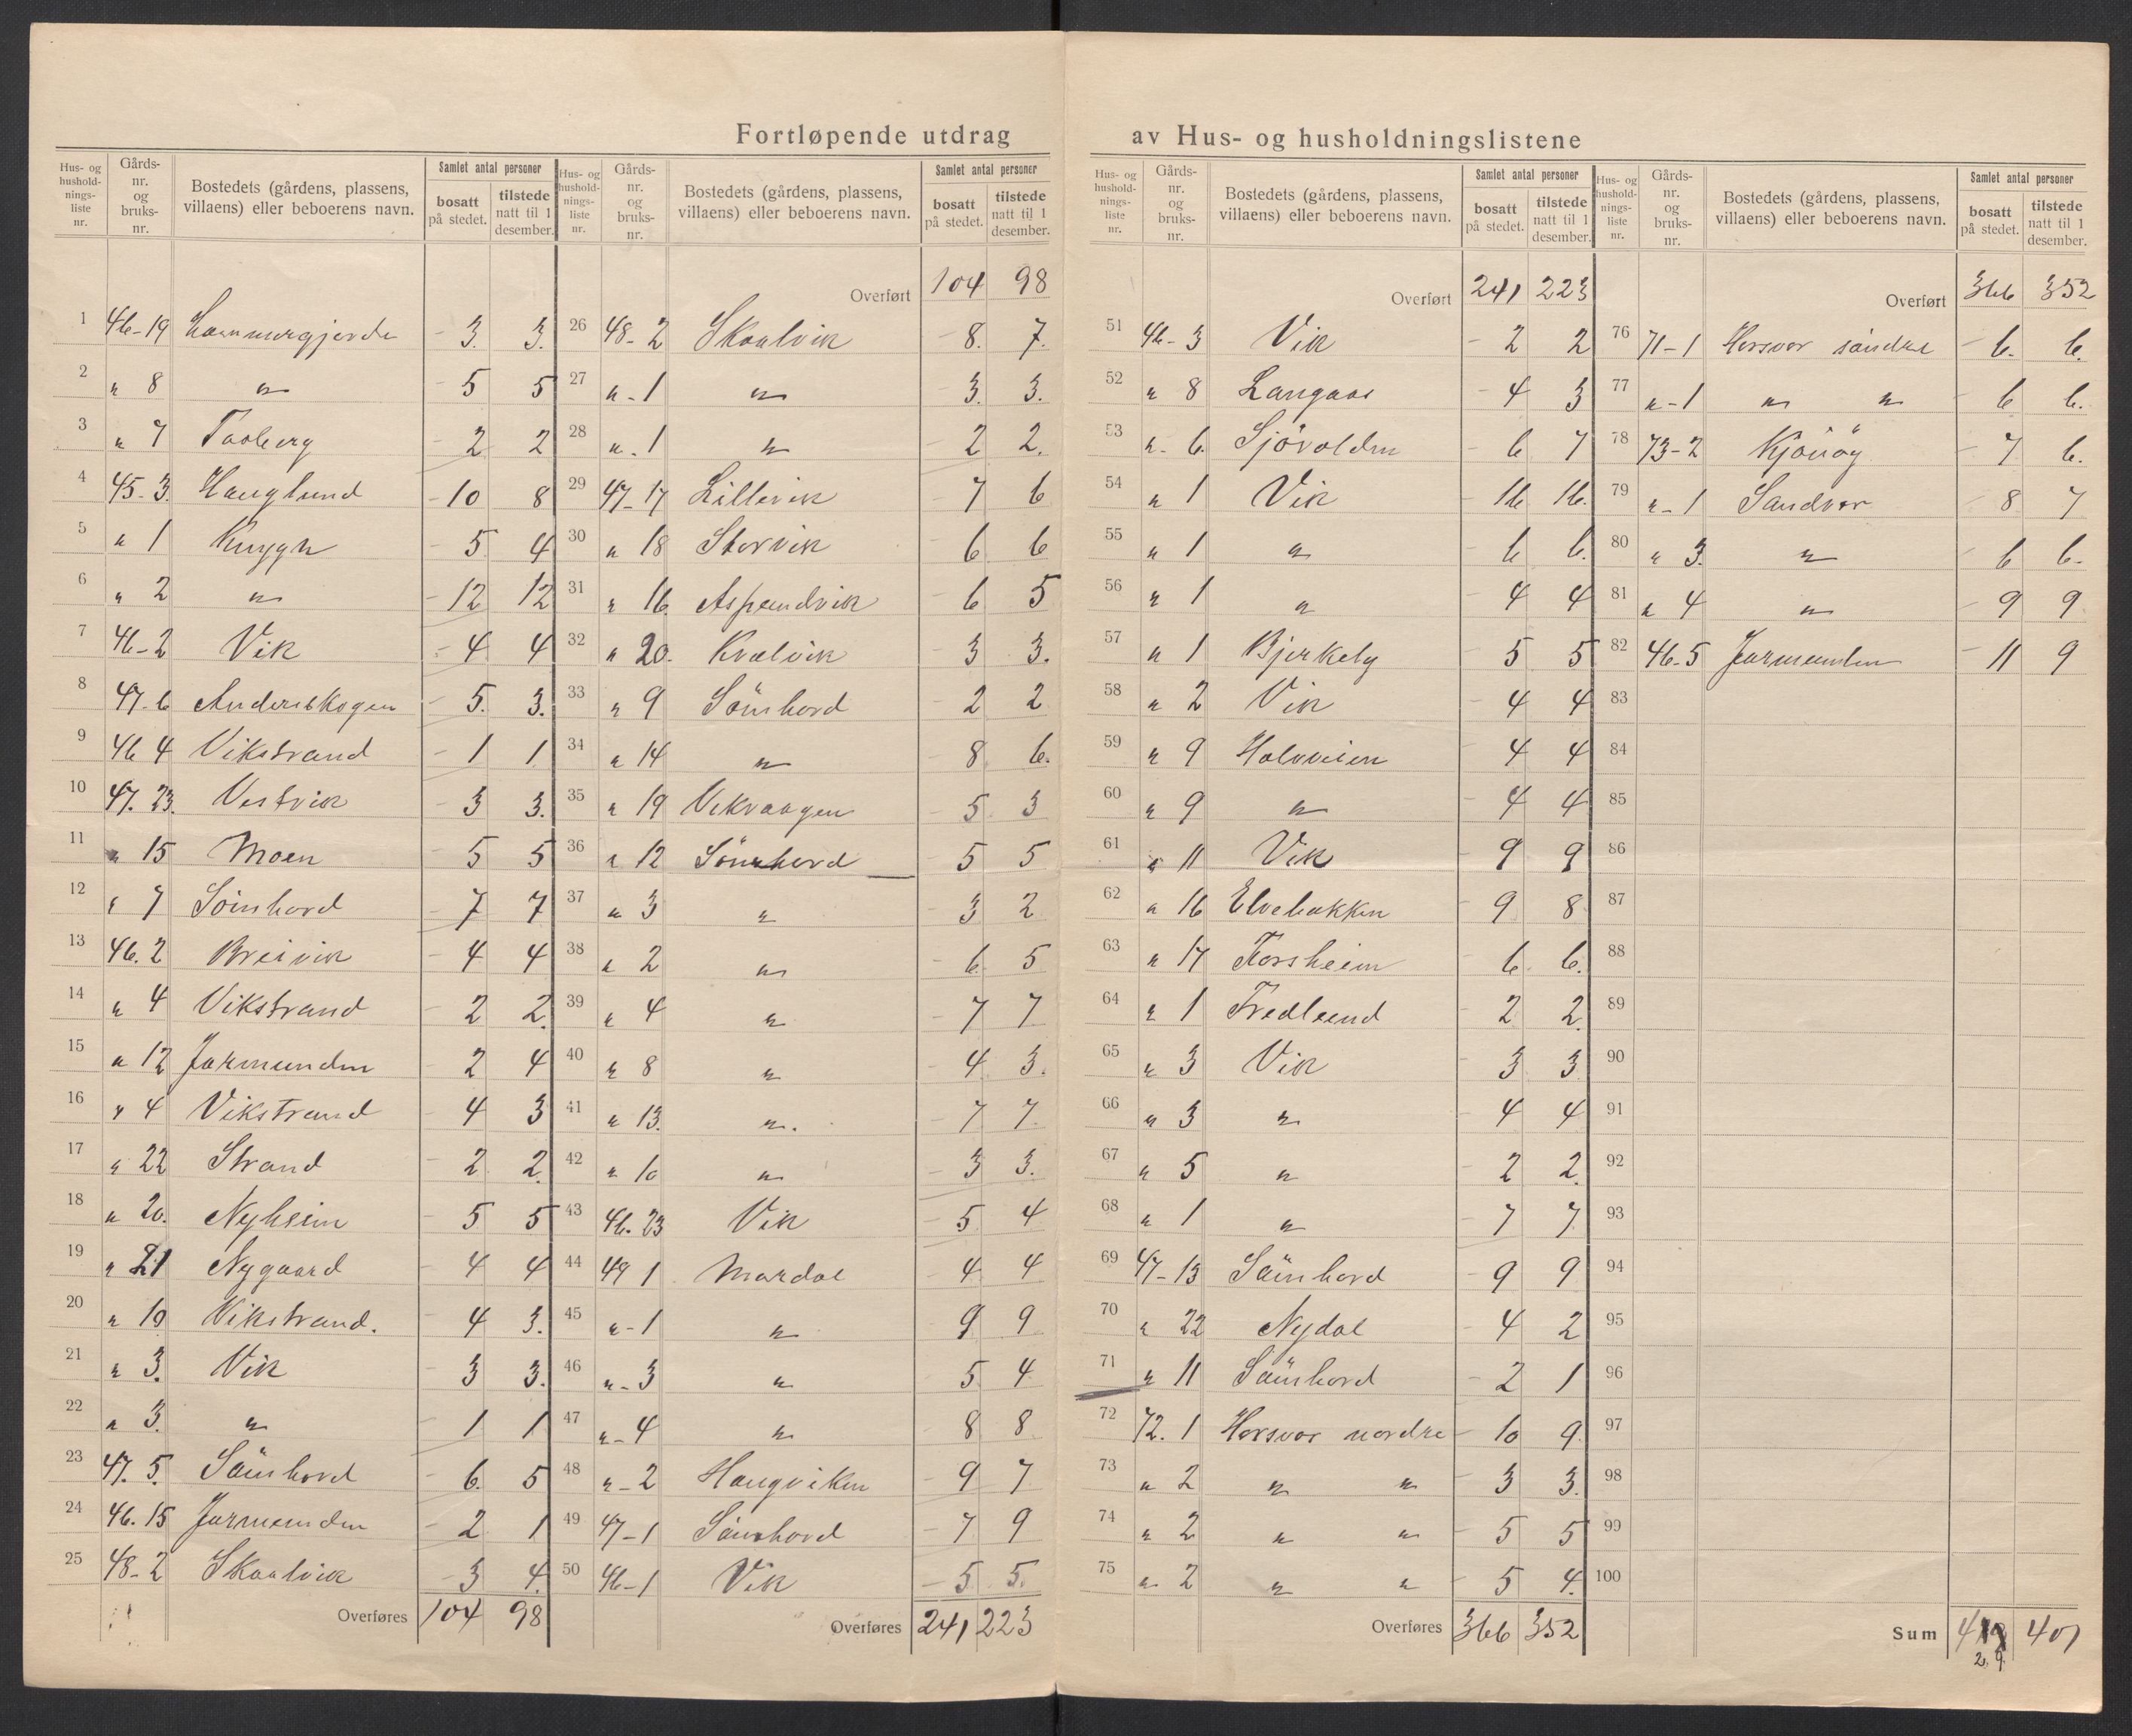 Fortløpende utdrag av Hus- og husholdningslistene
Hus- og husholdnings-liste nr. | Gårds-nr. og bruks-nr. | Bostedets (gårdens, plassens, villaens) eller beboerens navn. | Samlet antal personer | bosatt på stedet. | tilstede natt til 1 desember.
1 46-19 Lammergjerde 3. 3.
2 " 8 " 5 5
3 " 7 Taaberg 2 2
4 45-3. Hauglund 10 8
5 " 1 Knygh 5 4
6 " 2 " 12 12
7 46-2 Vik 4 4
8 47-6 Anderskogen 5. 3.
9 46 4 Vikstrand 1 1
10 47. 23. Vestvik 3 3.
11 " 15 Moen 5 5
12 " 7 Sömhovd 7 7
13 46. 2 Breivik 4 4
14 " 4 Vikstrand 2 2.
15 " 12 Jarmunden 2 4
16 " 4 Vikstrand 4 3
17 " 22 Strand 2 2.
18 " 20. Nyheim 5 5
19 " 21 Nygaard 4 4
20 " 19 Vikstrand. 4 3.
21 " 3. Vik 3 3.
22 " 3. " 1 1
23 47. 5. Sömhovd 6. 5
24 46. 15 Jarmunden 2 1
25 48-2 Skaalvik 3 4.
Overføres 104 98
Overført 104 98
26 48-2 Skaalvik 8. 7.
27 "-1 " 3. 3.
28 "-1 " 2 2.
29 47-17 Lillevik 7 6
30 " 18 Storvik 6 6
31 " 16. Aspendvik 6 5
32 " 20. Kvalvik 3 3.
33 " 9 Sömhovd 2 2
34 " 14 " 8 6.
35 " 19 Vikvaagen 5 3
36 " 12 Sömhovd 5 5
37 " 3 " 3 2
38 " 2 " 6. 5
39 " 4 " 7 7
40 " 8 " 4 3.
41 " 13. ". 7 7.
42 " 10 " 3 3.
43 46. 23 Vik 5 4
44 49 1 Mardal 4 4
45 "-1 " 9 9
46 "-3 " 5 4
47 "-4 " 8 8
48 "-2 Haugviken 9 7
49 47-1 Sömhovd 7 9
50 46-1 Vik 5 5.
Overføres 241 223
Hus- og husholdnings-liste nr. | Gårds-nr. og bruks-nr. | Bostedets (gårdens, plassens, villaens) eller beboerens navn. | Samlet antal personer | bosatt på stedet. | tilstede natt til 1 desember.
Overført 241 223
51 46-3 Vik 2 2
52 " 8 Langaas 4 3
53 "-6. Sjövolden 6 7
54 " 1 Vik 16 16.
55 " 1 " 6 6.
56 " 1 " 4 4
57 " 1 Bjerkely 5 5
58 " 2 Vik 4 4
59 " 9 Halvveien 4 4
60 " 9 " 4 4
61 " 11 Vik 9 9
62 " 16 Elvebakken 9 8
63 " 17 Forsheim 6 6.
64 " 1 Fredlund 2 2.
65 " 3 Vik 3 3
66 " 3 " 4 4
67 " 5 " 2 2.
68 " 1 " 7 7
69 47-13 Sömhovd 9 9
70 " 22 Nydal 4 2
71 " 11 Sömhovd 2 1
72 72. 1 Horsvær nordre 10 9
73 " 2 " " 3 3.
74 " 2 " " 5 5
75 " 2 " " 5 4.
Overføres 366 352
Overført 366 352
76 71-1 Horsvær söndre 6. 6.
77 "-1 " " 6 6.
78 73-2 Kjöuöy 7 6.
79 "-1 Sandvær 8 7
80 " 3. " 6 6.
81 " 4 " 9 9
82 46-5 Jarmunden 11 9
83
84
85
86
87
88
89
90
91
92
93
94
95
96
97
98
99
100
Sum 419 401
2. 9.